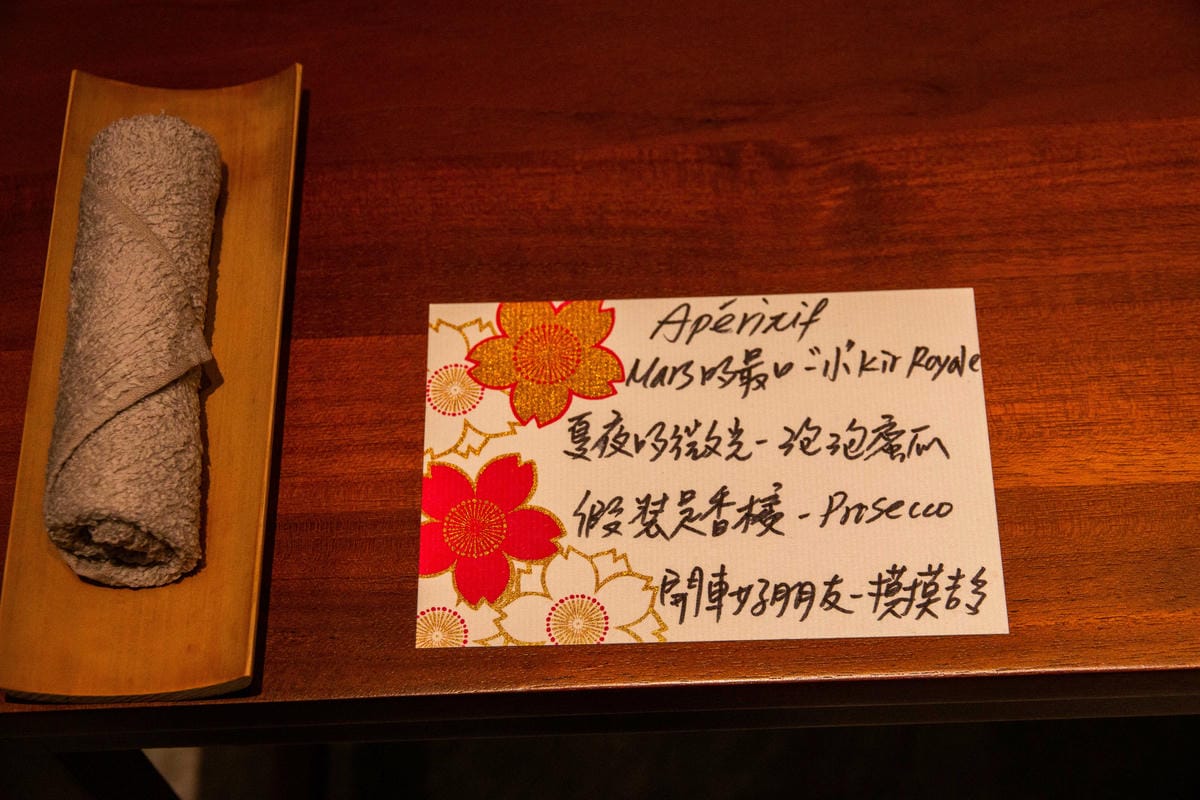 Apéritif
Mars的最口-"小"Kir Royale
夏夜的微光-泡泡蜜瓜
假裝是香檳-Prosecco
開車好朋友-摸摸吉多